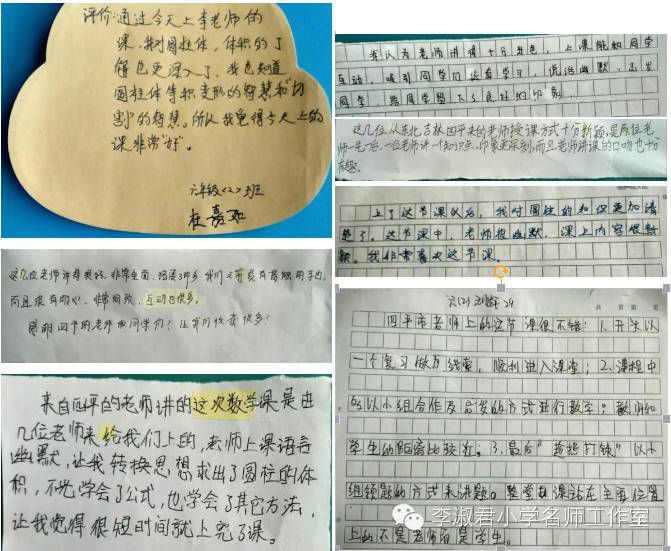 评价:通过今天上李老师的
课,我对圆柱体,体积的了
解也更深入了,我也知道
圆柱体等积变形的智慧和“切
割”的智慧。所以我觉得今天上的
课非常“好”。
六年级<2>班
杜嘉
我认为老师讲得十分出色,上课能和同学
互动,吸引同学们注意学习,说话幽默,
同学,给同学留下了良好的印象。
这几位从东北吉林四平来的老师授课方式十分新颖,是两位老
师一先一后,一位老师讲一个知识点,印象更深刻,而且老师讲课的口吻也十分
有趣。
上了这节课以后,我对圆柱的知识更加清
楚了,这节课中,老师很幽默,课上内容很新
颖。我非常喜欢这节课。
这几位老师讲得很好,非常全面,拓展
而且很有耐心,非常细致,互动也很多。
感谢四平的老师和同学们!让我们收获很多!
来自四平的老师讲的这次数学课是由
几位老师来给我们上的,老师上课语言
幽默,让我转换思想求出了圆柱的体
积,不光学会了公式,也学会了其它方法,
让我觉得很短时间就上完了课。
六(2)
共 页 第 页
四平市老师上的这节课很不错:1.开头以
一个复习做为线索,顺利进入课堂;2.课程中
以小组合作及启发的方式进行教学,
学生的距离比较近。3.最后“趁热打铁”以小
组领题的方式来讲题。整堂课站在主要位置
上的不是老师而是学生。
李淑君小学名师工作室